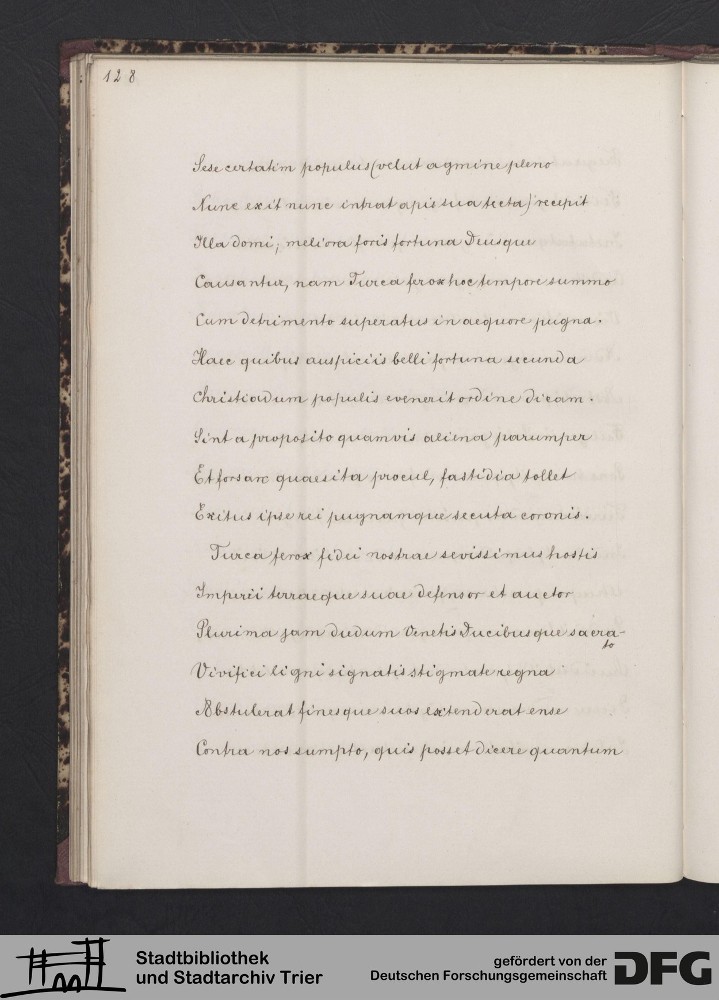 128
Sese certatim populus (velut agmine pleno
Nunc exit nunc intrat apis sua tecta) recepit
Illa domi; meliora foris fortuna Deusque
Causantur, nam Turca ferox hoc tempore summo
Cum detrimento superatus in aequore pugna.
Haec quibus auspiciis belli fortuna secunda
Christiadum populis evenerit ordine dicam.
Sint a proposito quamvis aliena parumper
Et forsan quaesita procul, fastidia tollet
Exitus ipse rei pugnamque secuta coronis.
Turca ferox fidei nostrae sevissimus hostis
Imperii terraeque suae defensor et auctor
Plurima jam dudum Venetis Ducibusque sacra-
to
Vivifici ligni signatis stigmate regna
Abstulerat finesque suos extenderat ense
Contra nos sumpto, quis posset dicere quantum
Stadtbibliothek
und Stadtarchiv Trier
gefördert von der
Deutschen Forschungsgemeinschaft
DFG